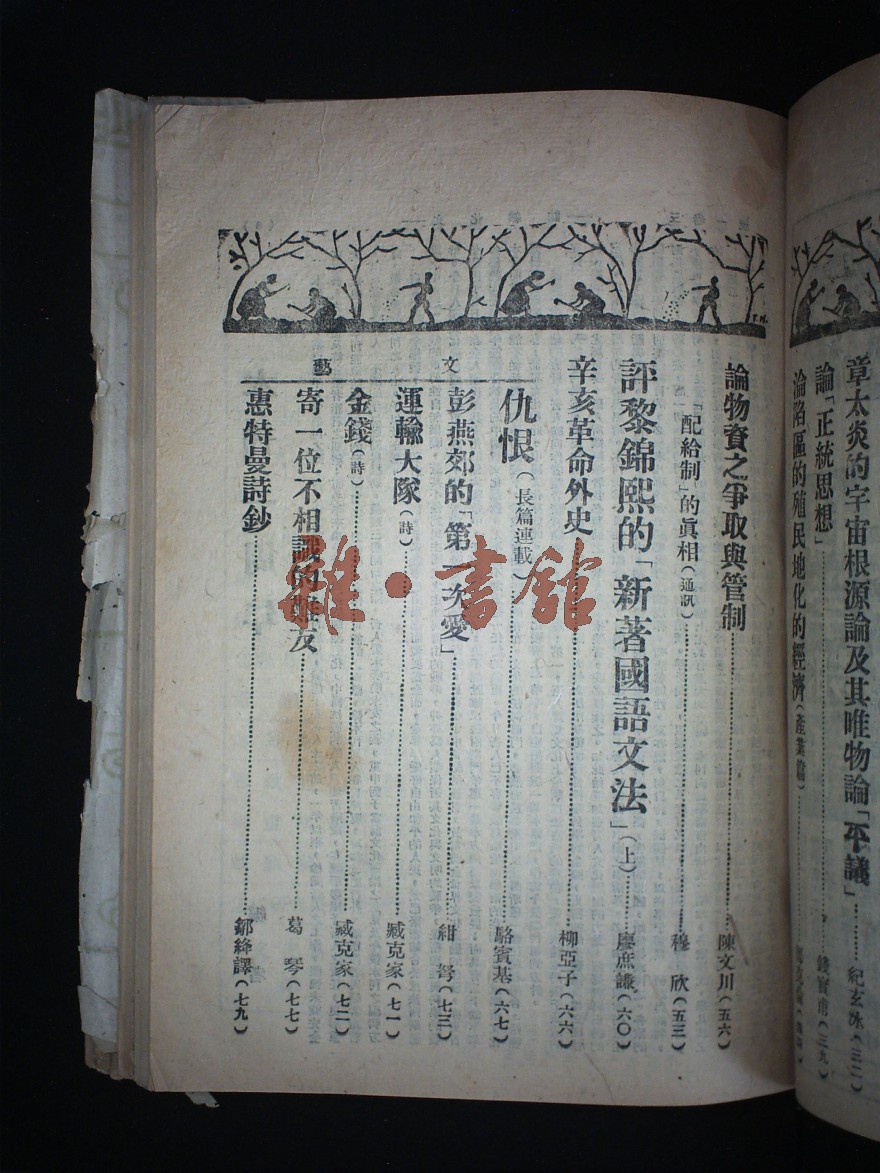 章太炎的宇宙根源論及其唯物論「平議」………紀玄冰(三二)
論「正統思想」………錢實甫(三九)
淪陷區的殖民地化的經濟(產業篇)………
論物資之爭取與管制………陳文川(五六)
「配給制」的眞相(通訊)………穆　欣(五三)
評黎錦熙的「新著國語文法」(上)………廖庶謙(六〇)
辛亥革命外史………柳亞子(六六)
文藝
仇恨(長篇連載)………駱賓基(六七)
彭燕郊的「第一次愛」………紺　弩(七三)
運輸大隊(詩)………臧克家(七一)
金錢(詩)………臧克家(七二)
寄一位不相識的難友………葛　琴(七七)
惠特曼詩鈔………鄒絳譯(七九)
雜·書館